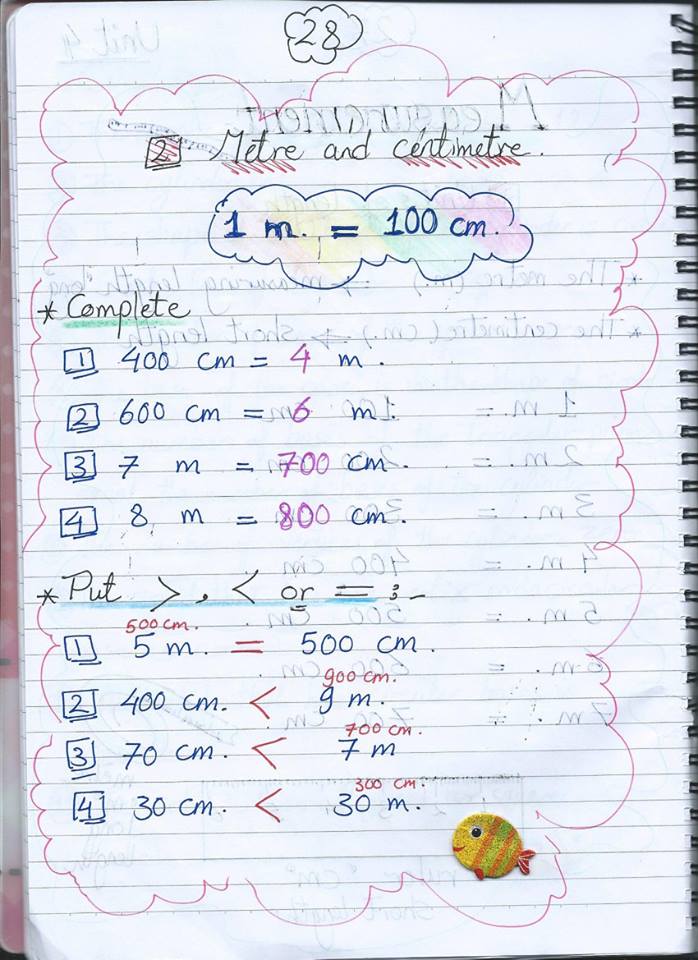 28
2 Metre and centimetre.
1 m. = 100 cm.
* Complete
1 400 cm = 4 m.
2 600 cm = 6 m.
3 7 m = 700 cm.
4 8 m = 800 cm.
* Put > , < or = :-
500 cm.
1 5 m. = 500 cm.
900 cm.
2 400 cm. < 9 m.
700 cm.
3 70 cm. < 7 m
300 cm.
4 30 cm. < 30 m.